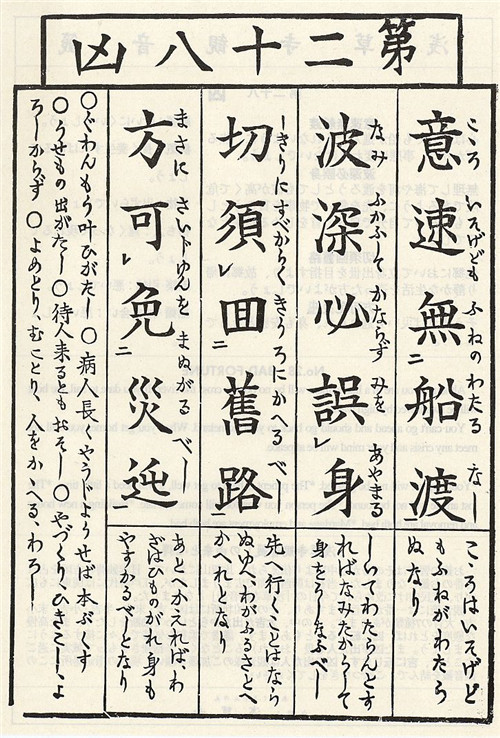 第二十八凶
こゝろ いそげども ふねのわたる な
意速無二船渡
こゝろはいそげど
もふねがわたら
ぬなり
なみ ふかふして かならず みを あやまる
波深必誤レ身
しいてわたらんとす
ればなみたかくして
身をうしなふべし
しきりにすべからく きうろにかへるべし
切須レ回二舊路一
先へ行くことはなら
ぬゆへ、わがふるさとへ
かへれとなし
まさに さいじゆんを まぬがる べし
方可レ免二災迍一
あとへかえれば、わ
ざはひものがれ身も
やすかるべしとなり
○ぐわんもう叶ひがたし ○病人長くやうじやうせば本ぶくす
○うせもの出がたし ○待人来るともおそし ○やづくり、ひきこし、よ
ろしからず ○よめとり、むことり、人をかゝへる、わろし